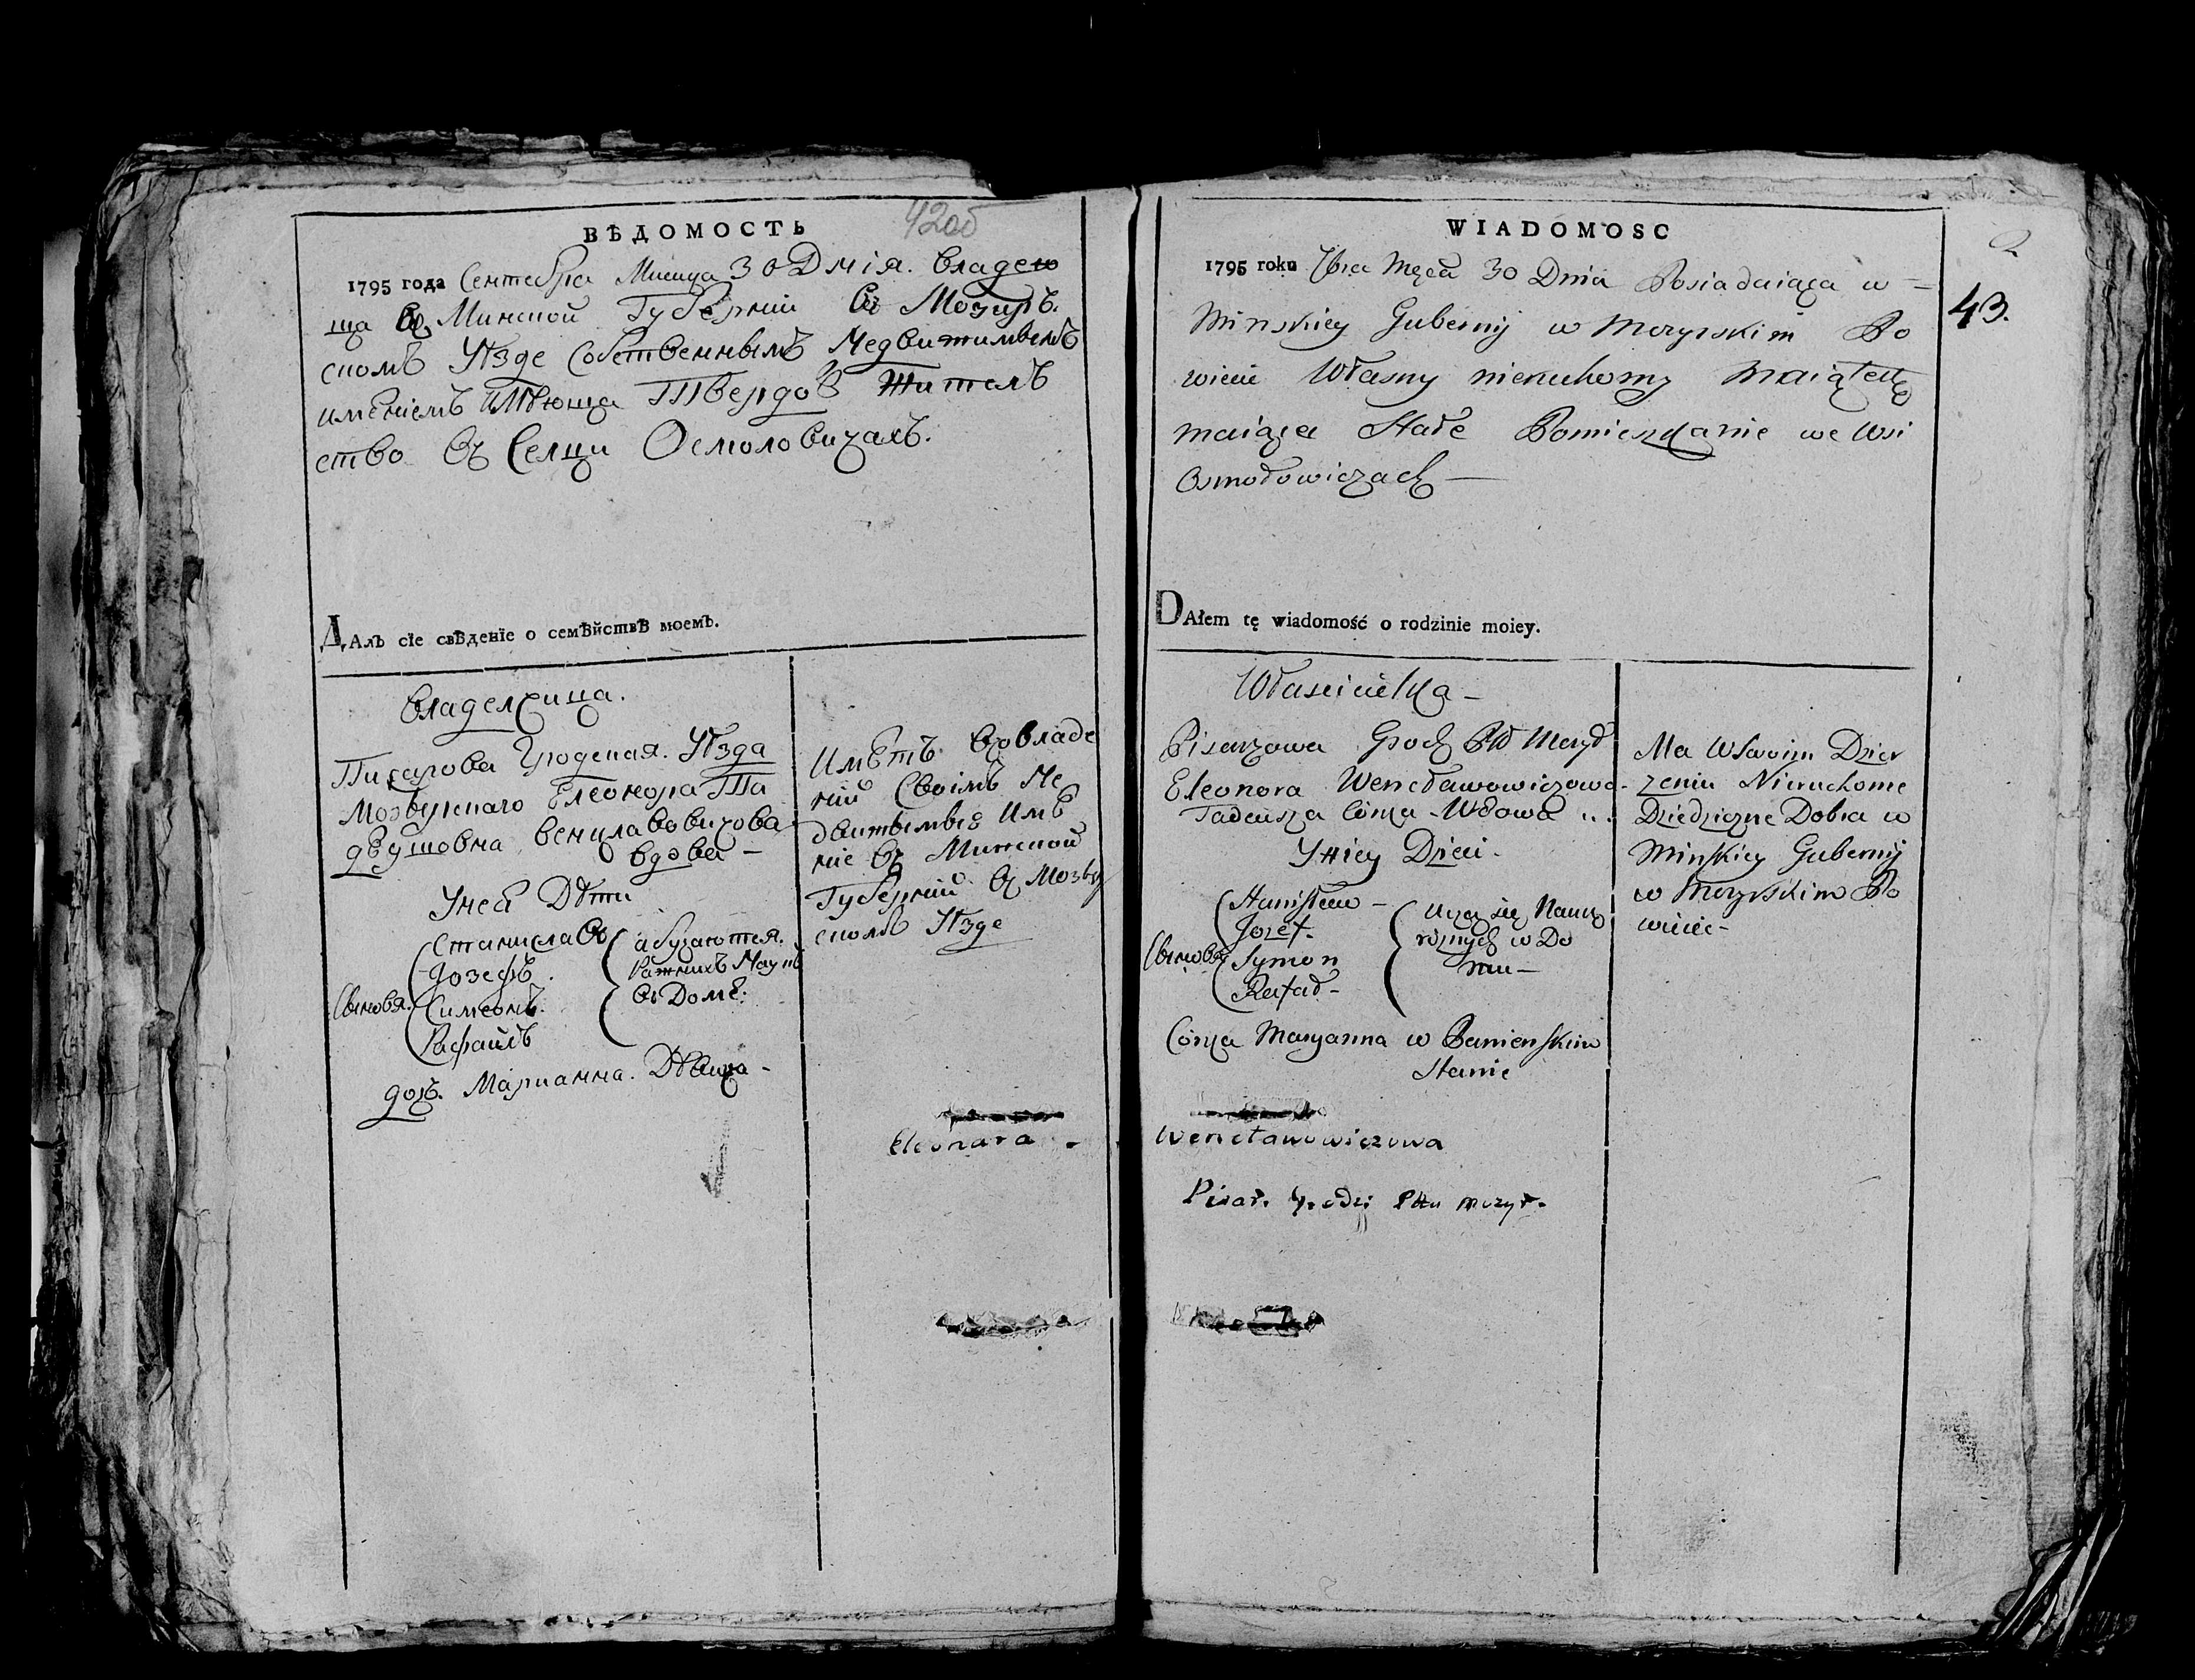 42об
ВѢДОМОСТЬ
1795 года Сентебра Мисица 30 Днія. Владею
ща Въ Минской Губерніи Въ Мозиръ.
скомъ Уѣзде Собственнымъ Недвижимымъ
имѣніемъ имѣюща Твердое Жител
ство Въ Селци Осмоловичахъ.
ДАлъ сїе свѣденїе о семѣйствѣ моемъ.
Владелсица.
Писарова Гродская. Уѣзда
Мозырскаго Елеонора Та
деушовна Венцлавовичова
вдова –
Унеи Дѣти
Сыновя.
Станиславъ
Іозефъ.
Симеонъ.
Рафаилъ
абучаютея.
Разнихъ Наукъ
въ Домѣ.
доч. Марианна. Дѣвица –
Имѣтъ Вовладе
нии Своімъ Не
движымые Имѣ
ние въ Минской
Губерніи въ Мозыр
скомъ Уѣзде
Eleonara –
WIADOMOSC
43.
1795 roku 7bra Męca 30 Dnia Posiadaiąca w –
Minskiey Gubernij w Mozyrskim Po
wiecie Własny nieruchomy Maiątek
maiąca Stałe Pomieszkanie we Wsi
Osmołowiczach –
DAłem tę wiadomość o rodzinie moiey.
Własicielka –
Pisarzowa Grodz Ptt Mozyr
Eleonora Wencławowiczowa
Tadeusza Corka Wdowa
Yniey Dzieci –
Сыновя
Stanisław –
Jozef –
Symon
Rafał –
Uczą się Nauk
róznych w Do
mu –
Córka Maryanna w Panienskim
Stanie
Wencławowiczowa
Pisar. Grodz: Pttu mozyr.
Ma W Swoim Dzier
zeniu Nieruchome
Dziedziczne Dobra w
Minskiey Guberniy
w Mozyrskim Po
wiecie –